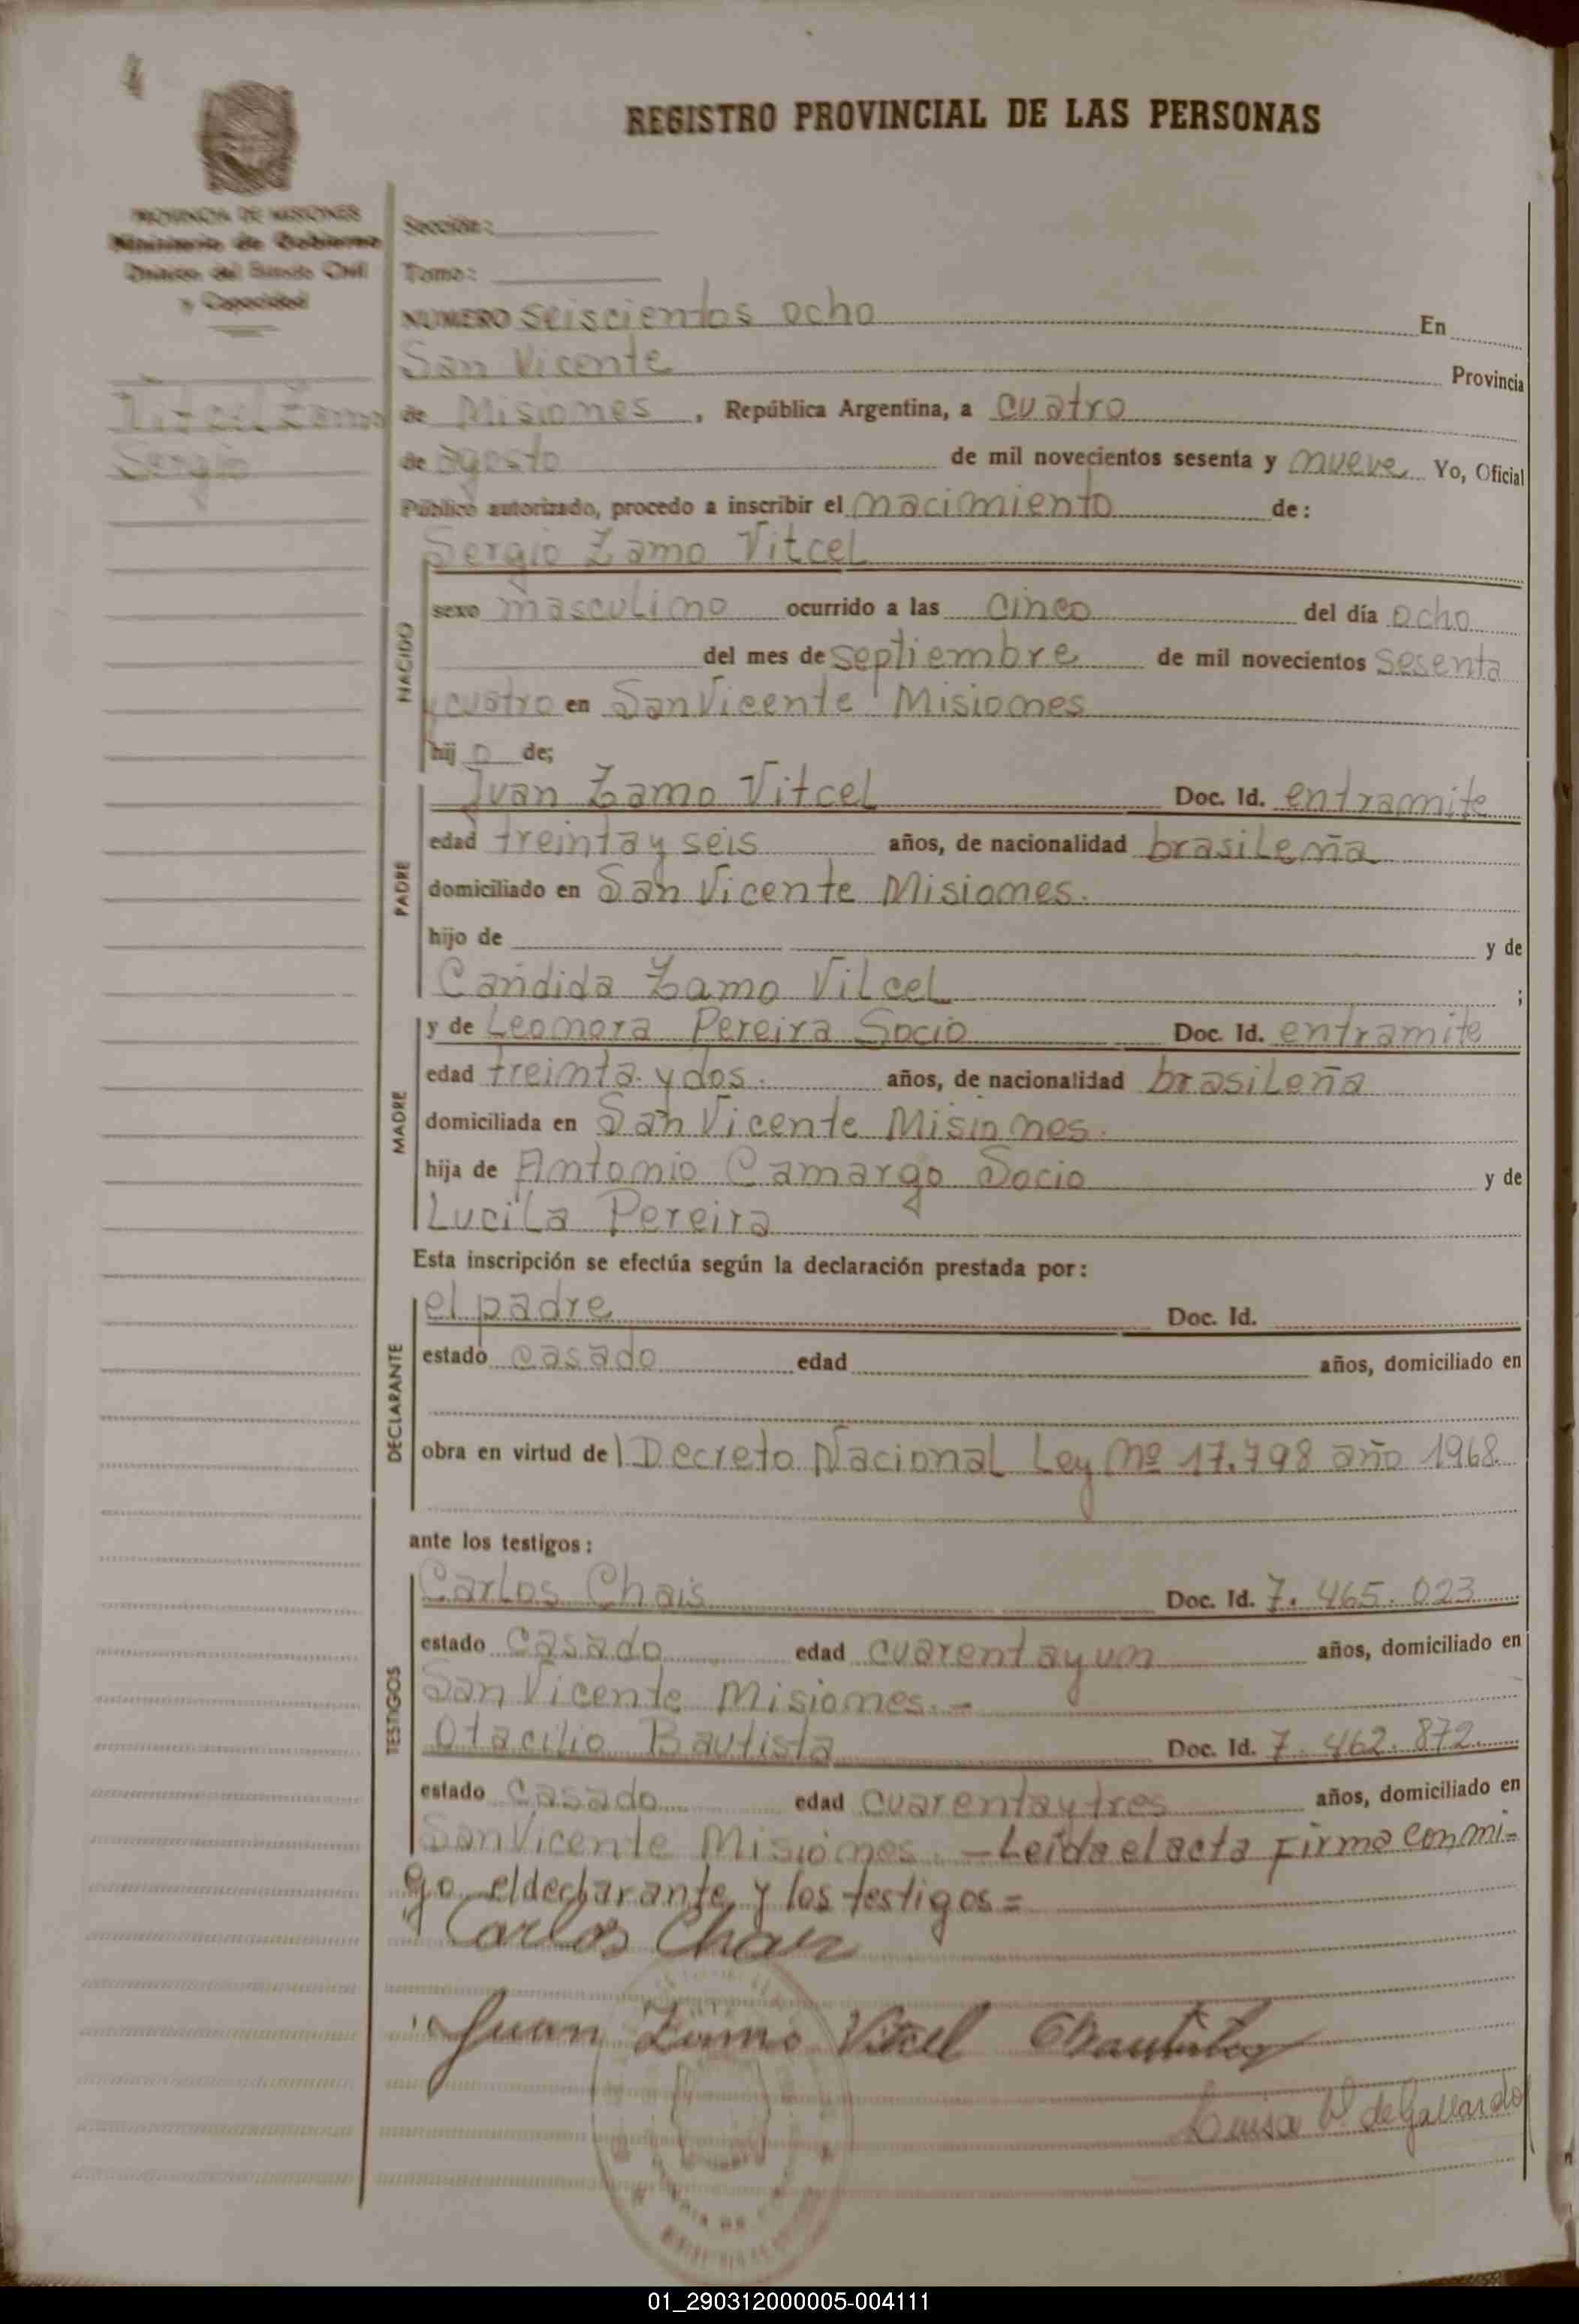 REGISTRO PROVINCIAL DE LAS PERSONAS
PROVINCIA DE MISIONES
Ministerio de Gobierno
Dirección del Estado Civil
y Capacidad
Vitcel Zamo
Sergio
Sección:
Tomo:
NUMERO seiscientos ocho En
San Vicente Provincia
de Misiones, República Argentina, a cuatro
de agosto de mil novecientos sesenta y nueve Yo, Oficial
Público autorizado, procedo a inscribir el nacimiento de:
Sergio Zamo Vitcel
NACIDO
sexo masculino ocurrido a las cinco del día ocho
del mes de septiembre de mil novecientos sesenta
y cuatro en San Vicente Misiones
hij o de;
PADRE
Juan Zamo Vitcel Doc. Id. entramite
edad treinta y seis años, de nacionalidad brasileña
domiciliado en San Vicente Misiones.
hijo de y de
Candida Zamo Vilcel ;
MADRE
y de Leonora Pereira Socio Doc. Id. entramite
edad treinta y dos. años, de nacionalidad brasileña
domiciliada en San Vicente Misiones.
hija de Antonio Camargo Socio y de
Lucila Pereira
Esta inscripción se efectúa según la declaración prestada por:
DECLARANTE
el padre Doc. Id.
estado casado edad años, domiciliado en
obra en virtud de l Decreto Nacional Ley Nº 17.798 año 1968.
ante los testigos:
TESTIGOS
Carlos Chais Doc. Id. 7.465.023
estado casado edad cuarenta y un años, domiciliado en
San Vicente Misiones.-
Otacilio Bautista Doc. Id. 7.462.872
estado casado edad cuarenta y tres años, domiciliado en
San Vicente Misiones. - Leída el acta firma conmi=
go el declarante y los testigos=
Carlos Chais
Juan Zamo Vitcel Bautista
Luisa V. de Gallardo
01_290312000005-004111